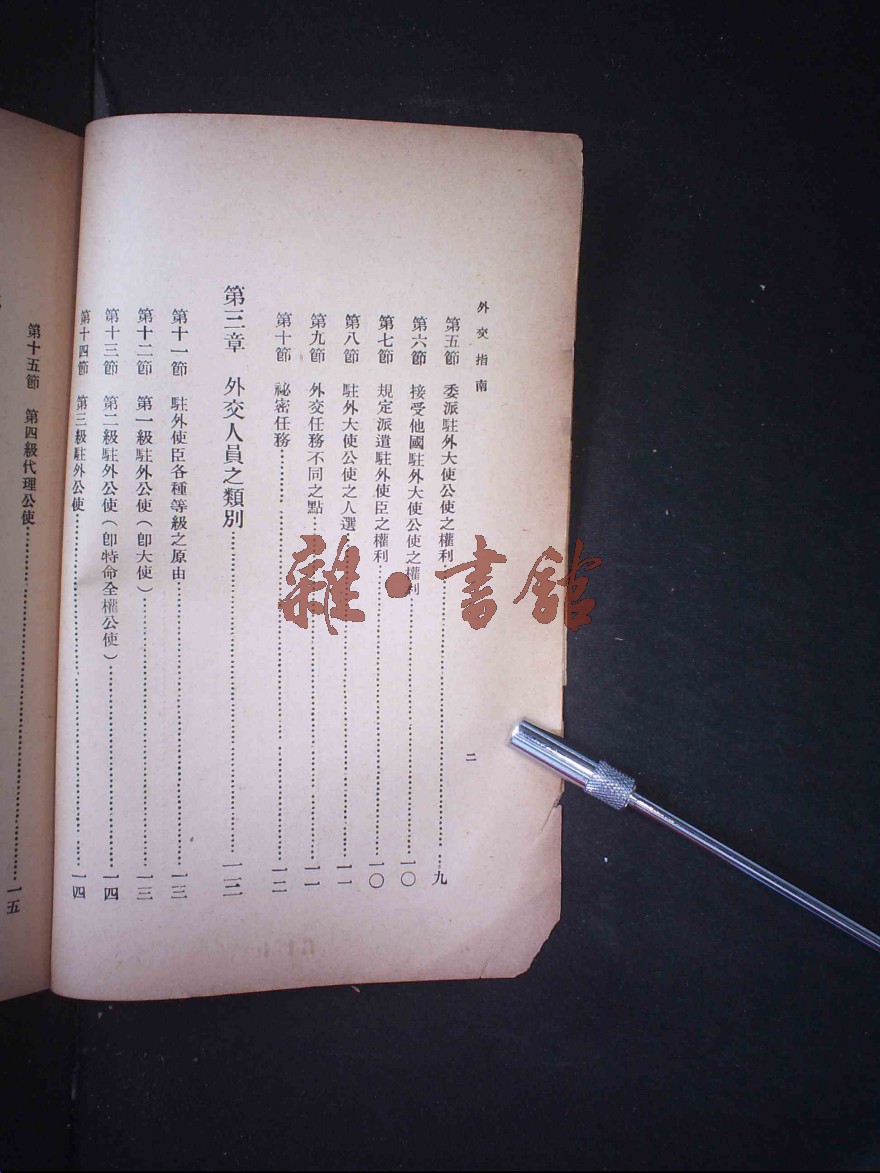 外交指南
第五節　委派駐外大使公使之權利……九
第六節　接受他國駐外大使公使之權利……一〇
第七節　規定派遣駐外使臣之權利……一〇
第八節　駐外大使公使之人選……一一
第九節　外交任務不同之點……一一
第十節　祕密任務……一二
第三章　外交人員之類別……一三
第十一節　駐外使臣各種等級之原由……一三
第十二節　第一級駐外公使（卽大使）……一三
第十三節　第二級駐外公使（卽特命全權公使）……一四
第十四節　第三級駐外公使……一四
二
第十五節　第四級代理公使……一五
雜·書館